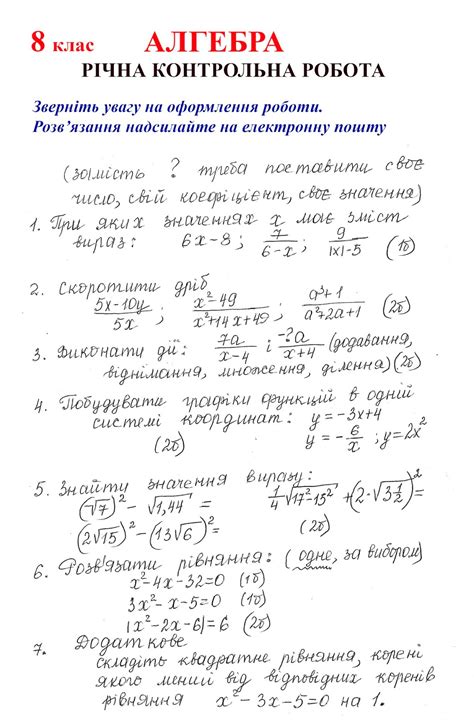 8 клас АЛГЕБРА
РІЧНА КОНТРОЛЬНА РОБОТА
Зверніть увагу на оформлення роботи.
Розв’язання надсилайте на електронну пошту
(замість ? треба поставити своє
число, свій коефіцієнт, своє значення)
1. При яких значеннях x має зміст
вираз: 6x-8; 7/(6-x); 9/(|x|-5) (1б)
2. Скоротити дріб
(5x-10y)/(5x); (x²-49)/(x²+14x+49); (a³+1)/(a²+2a+1) (2б)
3. Виконати дії: 7a/(x-4) і -?a/(x+4) (додавання,
віднімання, множення, ділення) (2б)
4. Побудувати графіки функцій в одній
системі координат: y=-3x+4
(2б) y=-6/x; y=2x²
5. Знайти значення виразу:
(√7)²-√1,44= 1/4√(17²-15²)+(2·√(3 1/2))²=
(2√15)²-(13√6)²= (2б)
6. Розв'язати рівняння: (одне, за вибором)
x²-4x-32=0 (1б)
3x²-x-5=0 (1б)
|x²-2x-6|=6 (2б)
7. Додаткове
складіть квадратне рівняння, корені
якого менші від відповідних коренів
рівняння x²-3x-5=0 на 1.